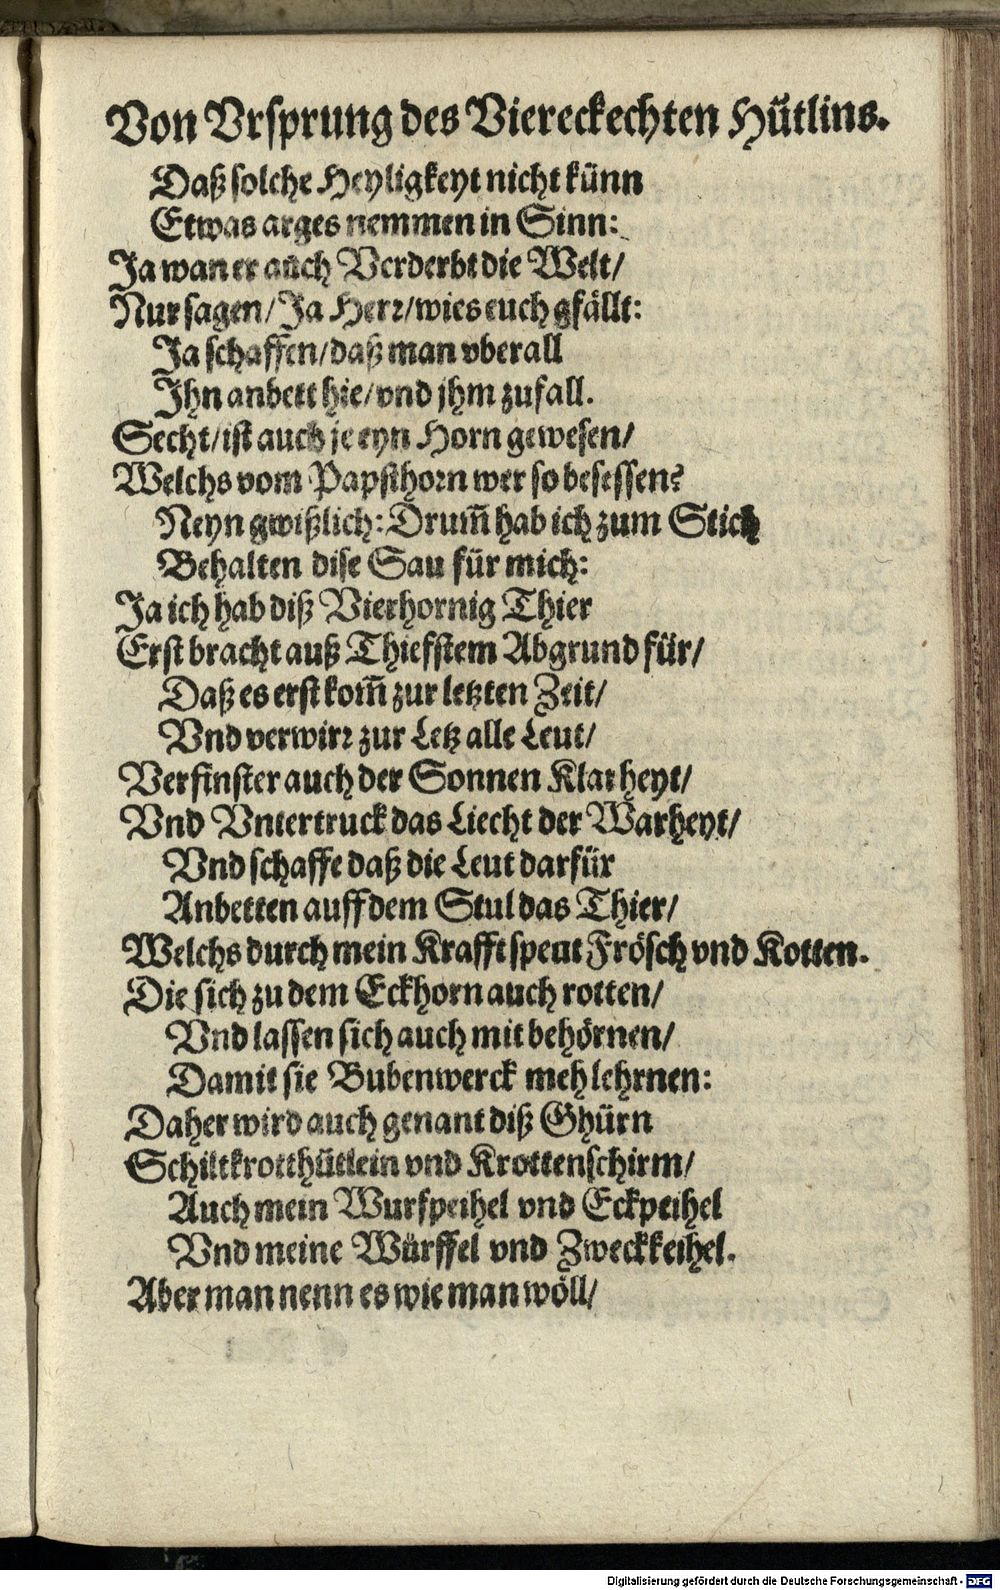 Von Vrsprung des Viereckechten Hütlins.
Daß solche Heyligkeyt nicht künn
Etwas arges nemmen in Sinn:
Ja wan er auch Verderbt die Welt/
Nur sagen/ Ja Herr/ wies euch gfällt:
Ja schaffen/ daß man vberall
Ihn anbett hie/ vnd jhm zufall.
Secht/ ist auch je eyn Horn gewesen/
Welchs vom Papsthorn wer so besessen?
Neyn gwißlich: Drum̃ hab ich zum Stich
Behalten dise Sau für mich:
Ja ich hab diß Vierhornig Thier
Erst bracht auß Thiefstem Abgrund für/
Daß es erst kom̃ zur letzten Zeit/
Vnd verwirr zur Letz alle Leut/
Verfinster auch der Sonnen Klarheyt/
Vnd Vntertruck das Liecht der Warheyt/
Vnd schaffe daß die Leut darfür
Anbetten auff dem Stul das Thier/
Welchs durch mein Krafft speut Frösch vnd Kotten.
Die sich zu dem Eckhorn auch rotten/
Vnd lassen sich auch mit behörnen/
Damit sie Bubenwerck meh lehrnen:
Daher wird auch genant diß Ghürn
Schiltkrotthütlein vnd Krottenschirm/
Auch mein Wurfpeihel vnd Eckpeihel
Vnd meine Würffel vnd Zweckkeihel.
Aber man nenn es wie man wöll/
Digitalisierung gefördert durch die Deutsche Forschungsgemeinschaft - DFG